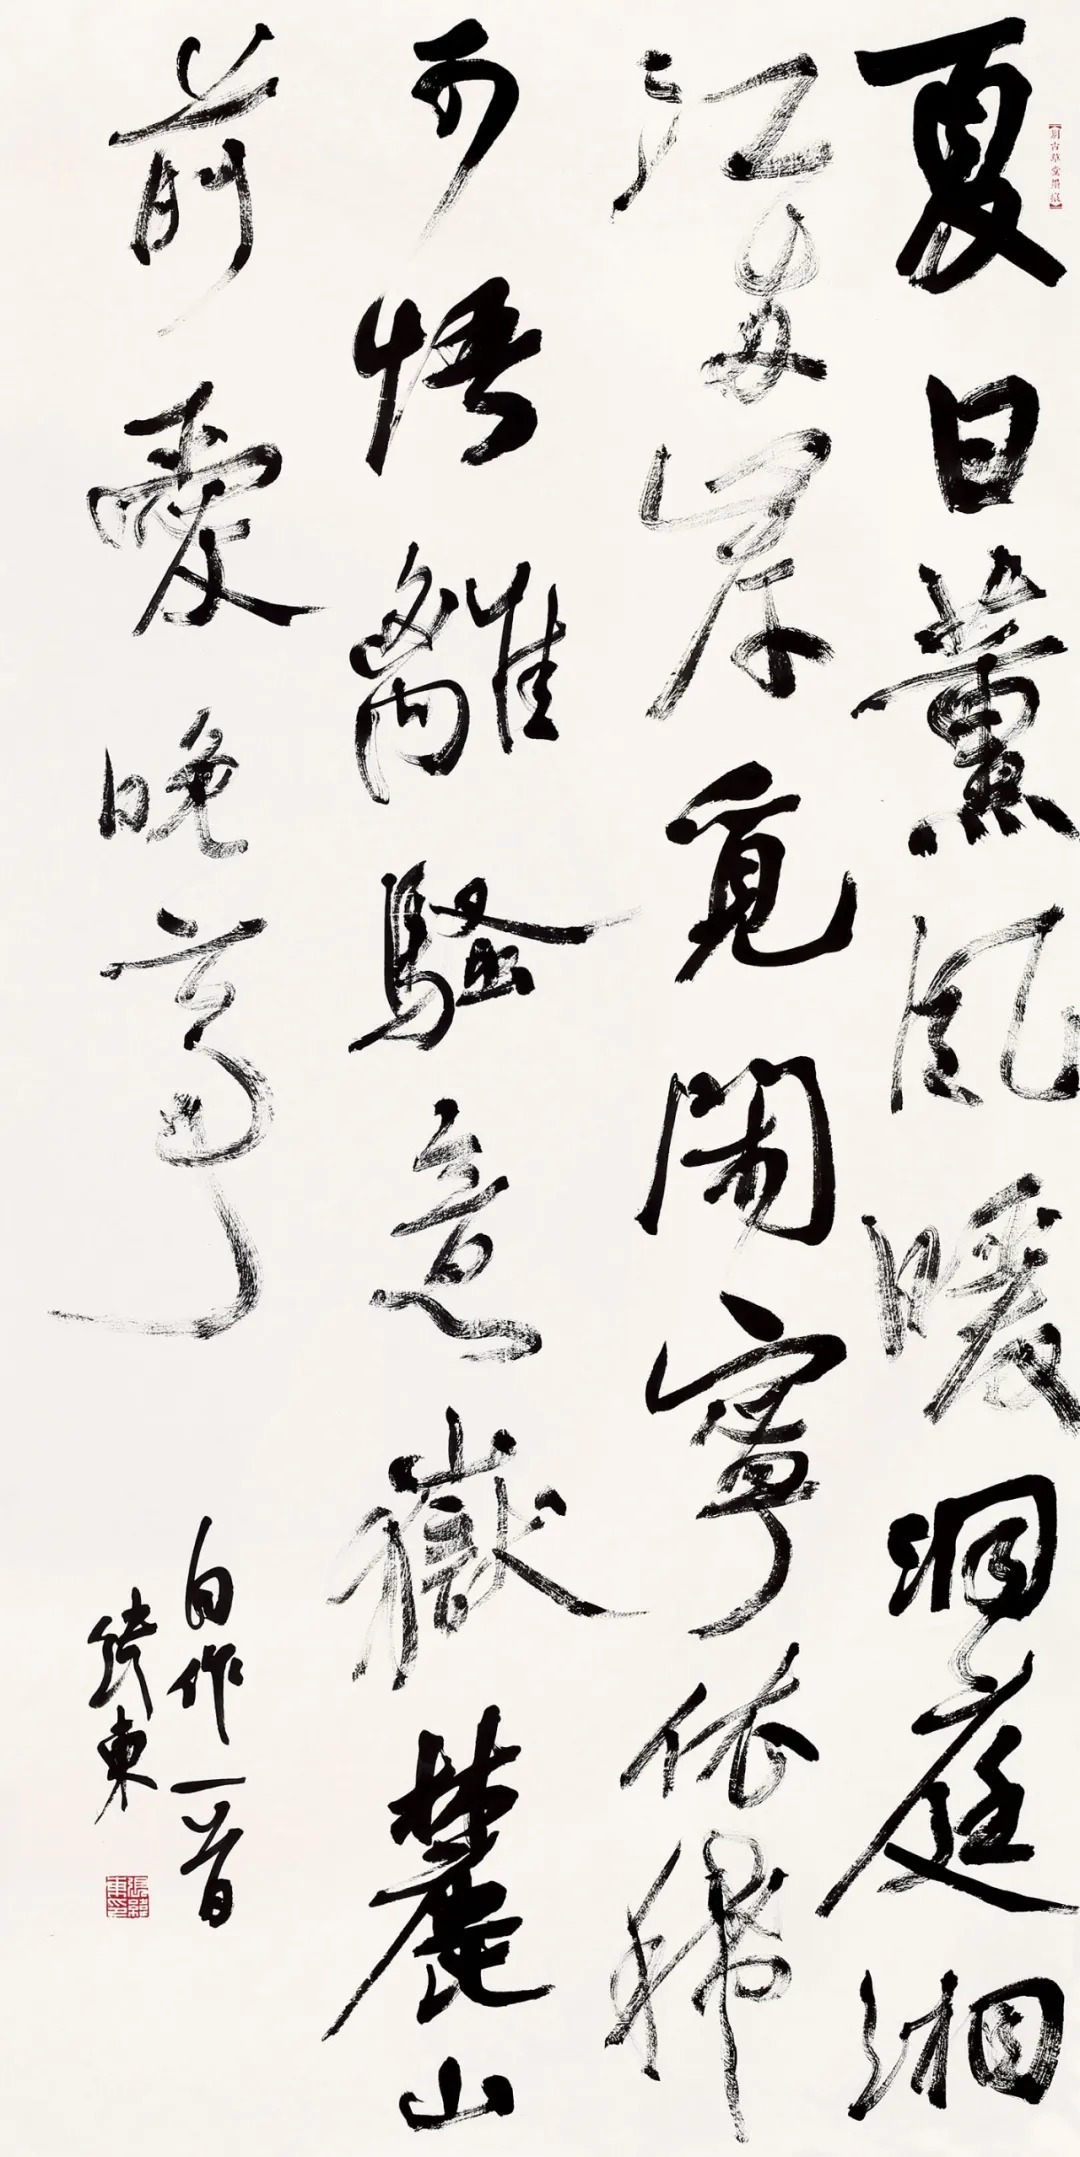 夏日薰風暖洞庭湘
江两岸覓閙寧依稀
可悟離騷意嶽麓山
前愛晚亭
自作一首
東